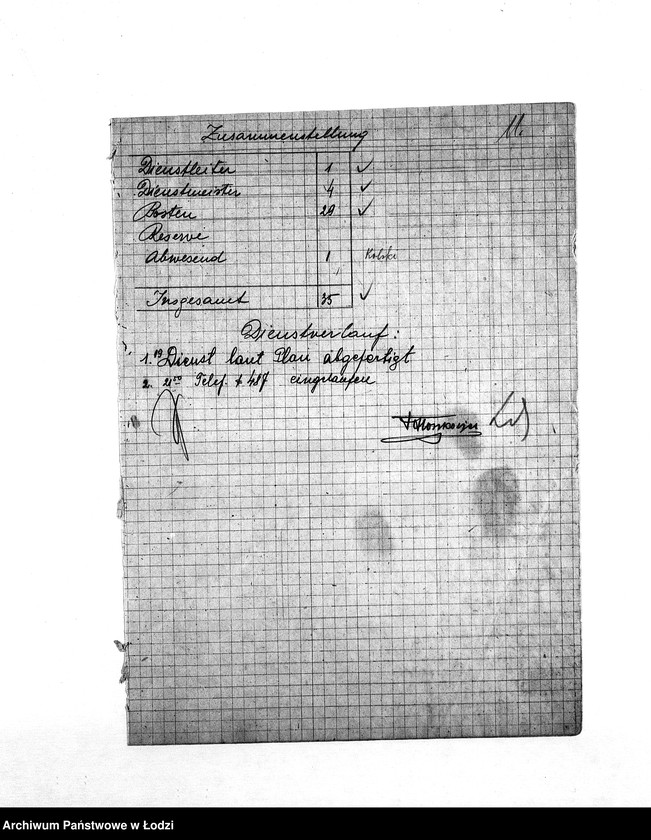 Zusammenstellung 11.
Dienstleiter 1 ✓
Dienstmeister 4 ✓
Posten 29 ✓
Reserve
Abwesend 1 Kolski
Insgesamt 35 ✓
Dienstverlauf:
1. 19 Dienst laut Plan abgefertigt
2. 21⁰⁰ Telef. № 487 eingelaufen
Archiwum Państwowe w Łodzi